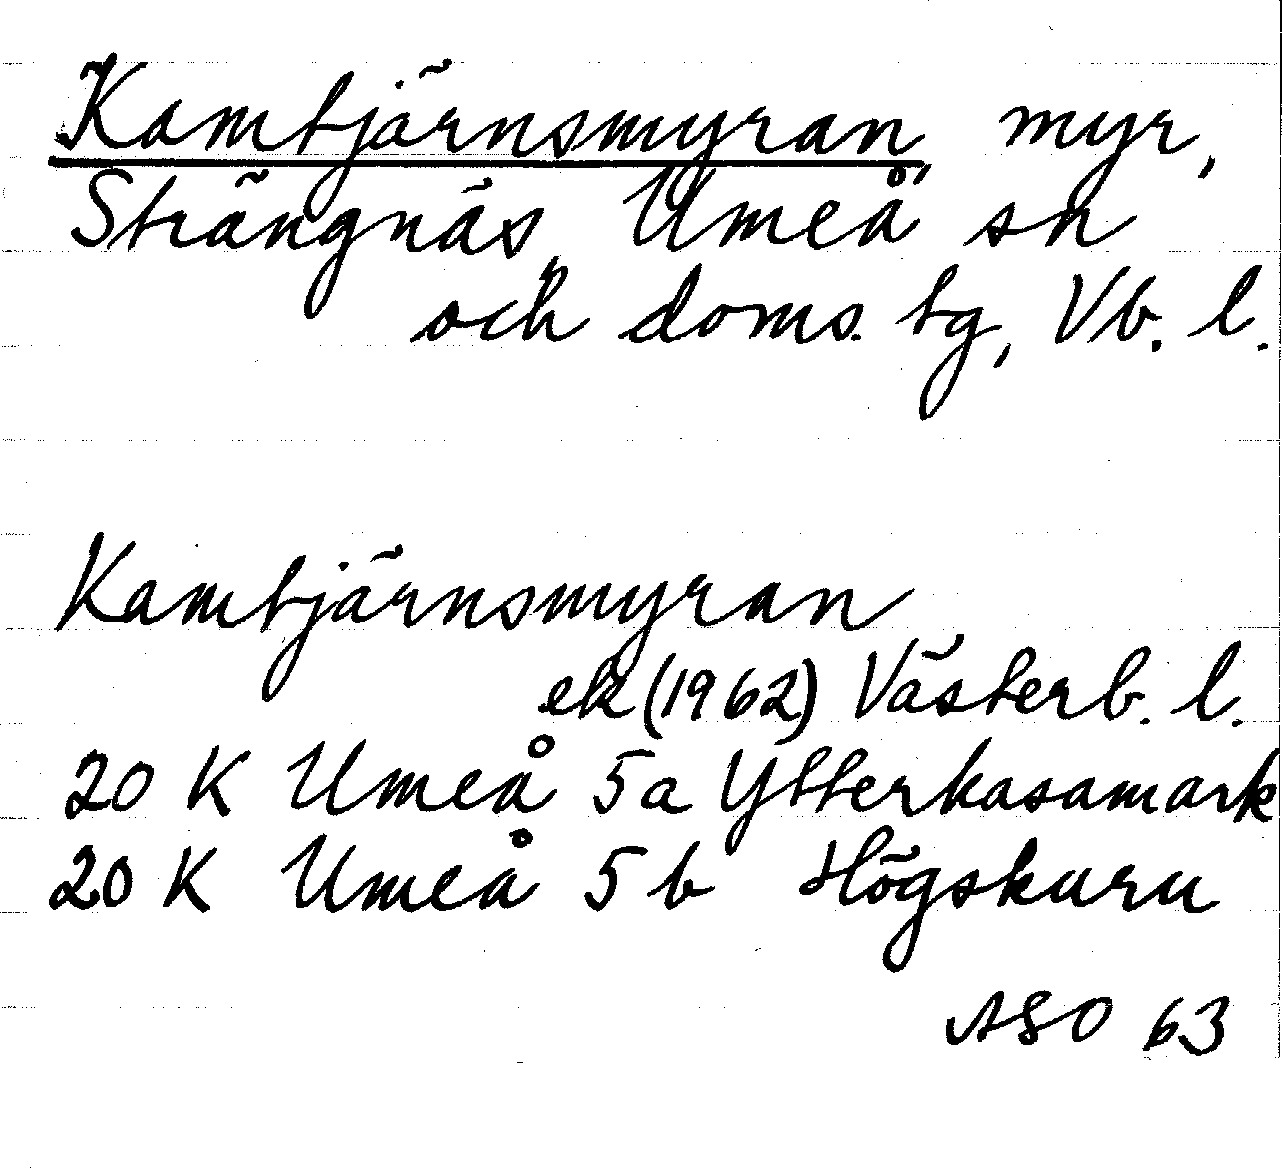 Kamtjärnsmyran, myr,
Strängnäs, Umeå sn
och doms. tg, Vb. l.
Kamtjärnsmyran
ek (1962) Västerb. l.
20 K Umeå 5a Ytterkasamark
20 K Umeå 5 b Högskuru
ASO 63